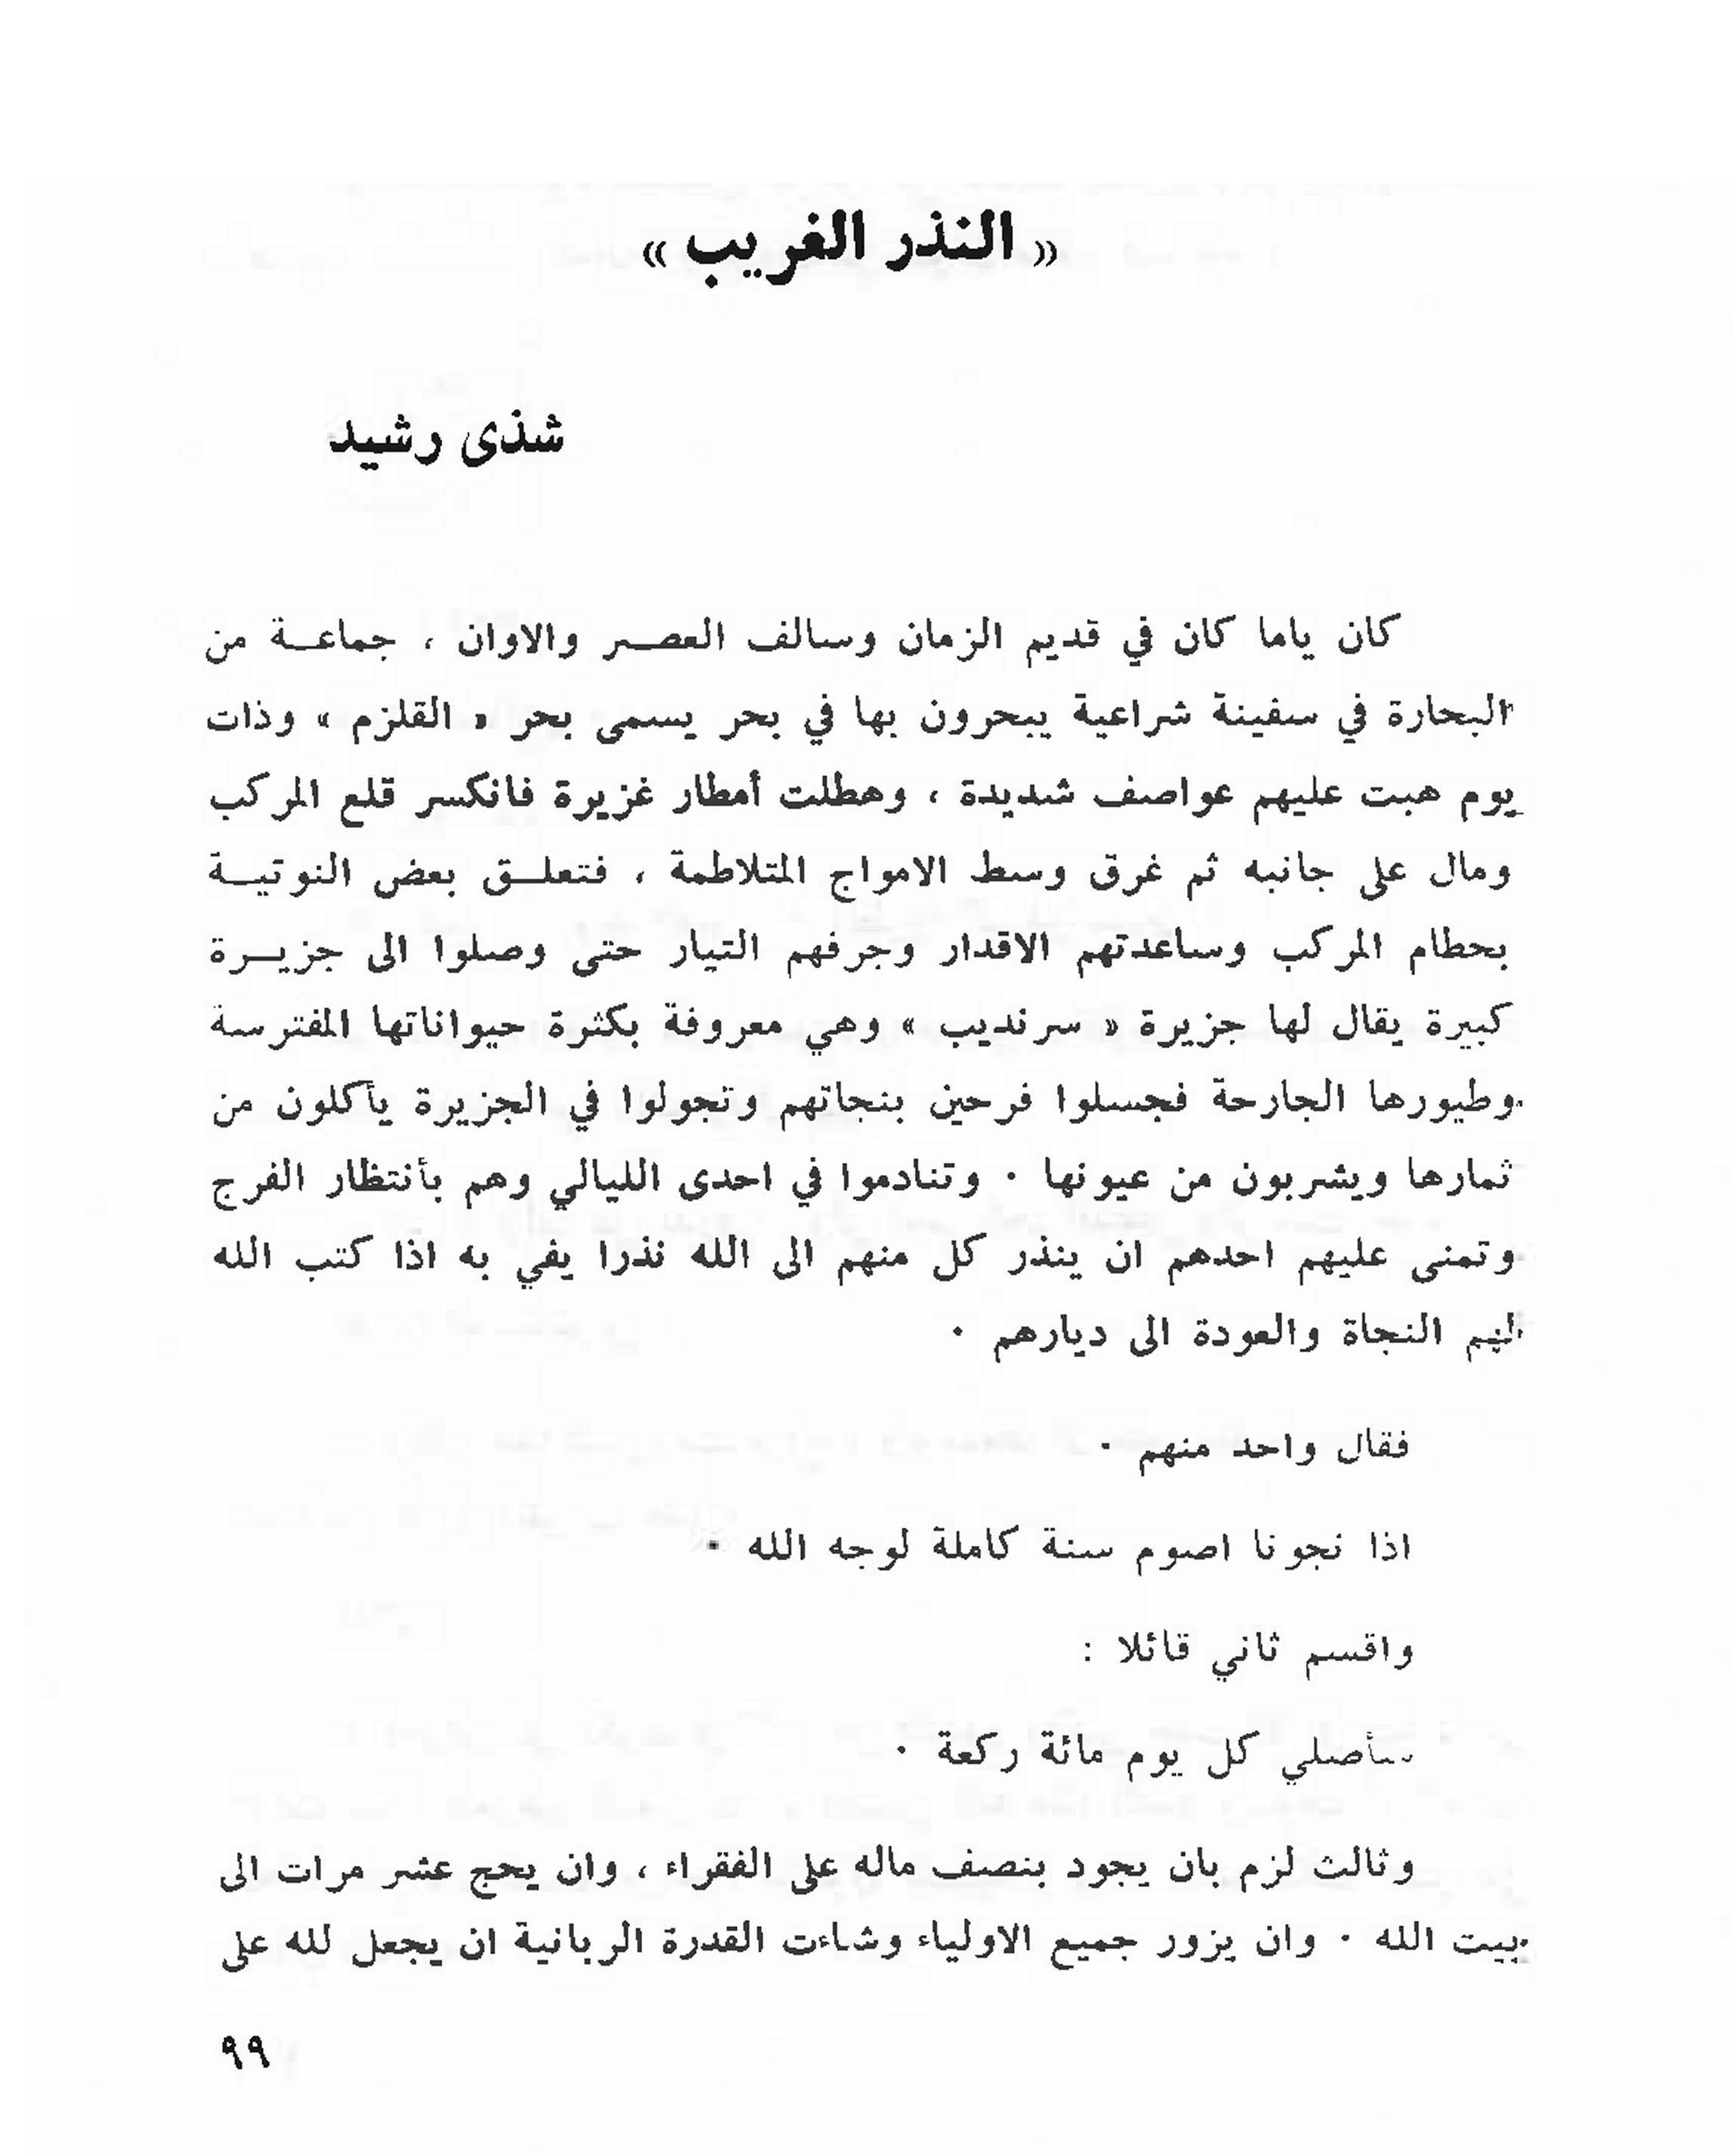 « النذر الغريب »
شذى رشيد
كان ياما كان في قديم الزمان وسالف العصر والاوان ، جماعة من
البحارة في سفينة شراعية يبحرون بها في بحر يسمى بحر « القلزم » وذات
يوم هبت عليهم عواصف شديدة ، وهطلت أمطار غزيرة فانكسر قلع المركب
ومال على جانبه ثم غرق وسط الامواج المتلاطمة ، فتعلق بعض النوتية
بحطام المركب وساعدتهم الاقدار وجرفهم التيار حتى وصلوا الى جزيرة
كبيرة يقال لها جزيرة « سرنديب » وهي معروفة بكثرة حيواناتها المفترسة
وطيورها الجارحة فجسلوا فرحين بنجاتهم وتجولوا في الجزيرة يأكلون من
ثمارها ويشربون من عيونها . وتنادموا في احدى الليالي وهم بأنتظار الفرج
وتمنى عليهم احدهم ان ينذر كل منهم الى الله نذرا يفي به اذا كتب الله
لهم النجاة والعودة الى ديارهم .
فقال واحد منهم .
اذا نجونا اصوم سنة كاملة لوجه الله .
واقسم ثاني قائلا :
سأصلي كل يوم مائة ركعة .
وثالث لزم بان يجود بنصف ماله على الفقراء ، وان يحج عشر مرات الى
بيت الله . وان يزور جميع الاولياء وشاءت القدرة الربانية ان يجعل لله على
٩٩